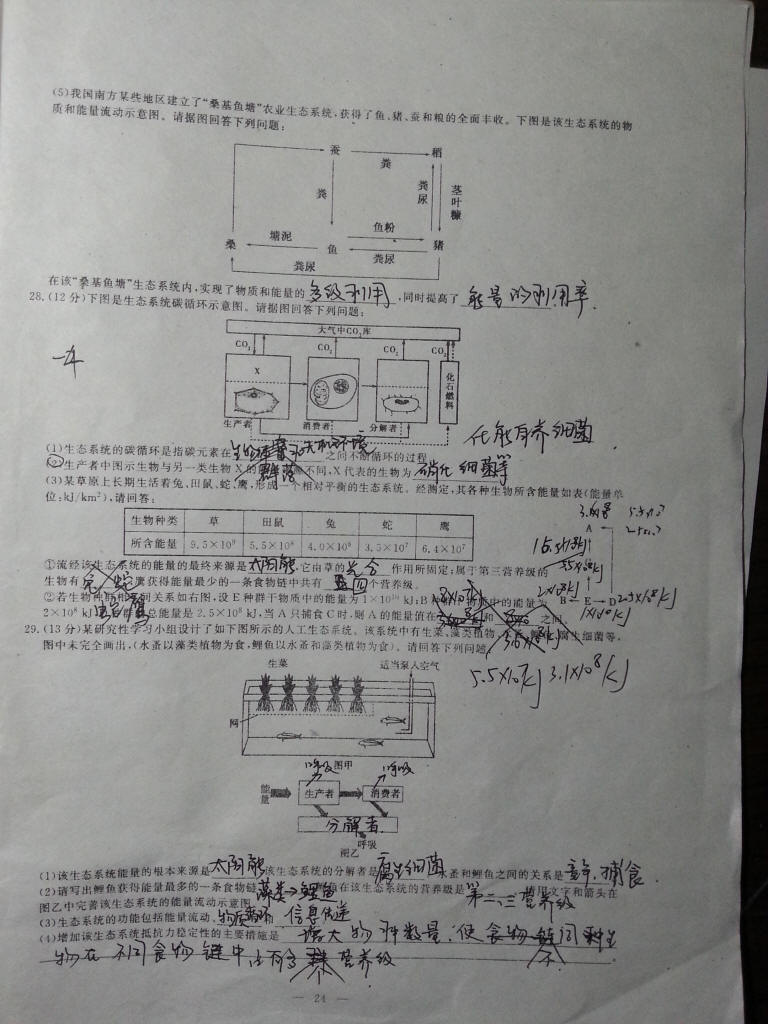 (5)我国南方某些地区建立了“桑基鱼塘”农业生态系统,获得了鱼、猪、蚕和粮的全面丰收。下图是该生态系统的物
质和能量流动示意图。请据图回答下列问题:
蚕 粪 稻
粪 粪尿 茎叶糠
鱼粉
桑 塘泥 鱼 猪
粪尿 粪尿
在该“桑基鱼塘”生态系统内,实现了物质和能量的 多级利用 ,同时提高了 能量的利用率.
28.(12分)下图是生态系统碳循环示意图。请据图回答下列问题:
大气中CO₂库
CO₂ CO₂ CO₂ CO₂
X 化石燃料
生产者 消费者 分解者
化能自养细菌
(1)生态系统的碳循环是指碳元素在 生物群落和无机环境 之间不断循环的过程
(2)生产者中图示生物与另一类生物X的 不同,X代表的生物为 硝化细菌等
(3)某草原上长期生活着兔、田鼠、蛇、鹰,形成一个相对平衡的生态系统。经测定,其各种生物所含能量如表(能量单
位:kJ/km²),请回答:
生物种类 草 田鼠 兔 蛇 鹰
所含能量 9.5×10⁹ 5.5×10⁸ 4.0×10⁸ 3.5×10⁷ 6.4×10⁷
A
B E D
①流经该生态系统的能量的最终来源是 太阳能 ,它由草的 光合 作用所固定;属于第三营养级的
生物有 蛇 鹰 鹰获得能量最少的一条食物链中共有 四 个营养级。
②若生物种 关系如右图,设E种群于物质中的能量为1×10¹⁰ kJ;B 物质中的能量为
2×10⁸ kJ 总能量是2.5×10⁸ kJ,当A只捕食C时,则A的能量值在 和 之间。
5.5×10⁷kJ 3.1×10⁸kJ
29.(13分)某研究性学习小组设计了如下图所示的人工生态系统。该系统中有生菜、藻类植物、 腐生细菌等。
图中未完全画出,(水蚤以藻类植物为食,鲤鱼以水蚤和藻类植物为食)。请回答下列问题
生菜 适当泵入空气
网
图甲
呼吸 呼吸
能量 生产者 消费者
分解者
呼吸
图乙
(1)该生态系统能量的根本来源是 太阳能 该生态系统的分解者是 腐生细菌 水蚤和鲤鱼之间的关系是 竞争,捕食.
(2)请写出鲤鱼获得能量最多的一条食物链 藻类→鲤鱼 鱼在该生态系统的营养级是 第二、三营养级 请用文字和箭头在
图乙中完善该生态系统的能量流动示意图
(3)生态系统的功能包括能量流动、 物质循环 信息传递
(4)增加该生态系统抵抗力稳定性的主要措施是 增大物种数量,使食物
物在不同食物链中 营养级
— 24 —